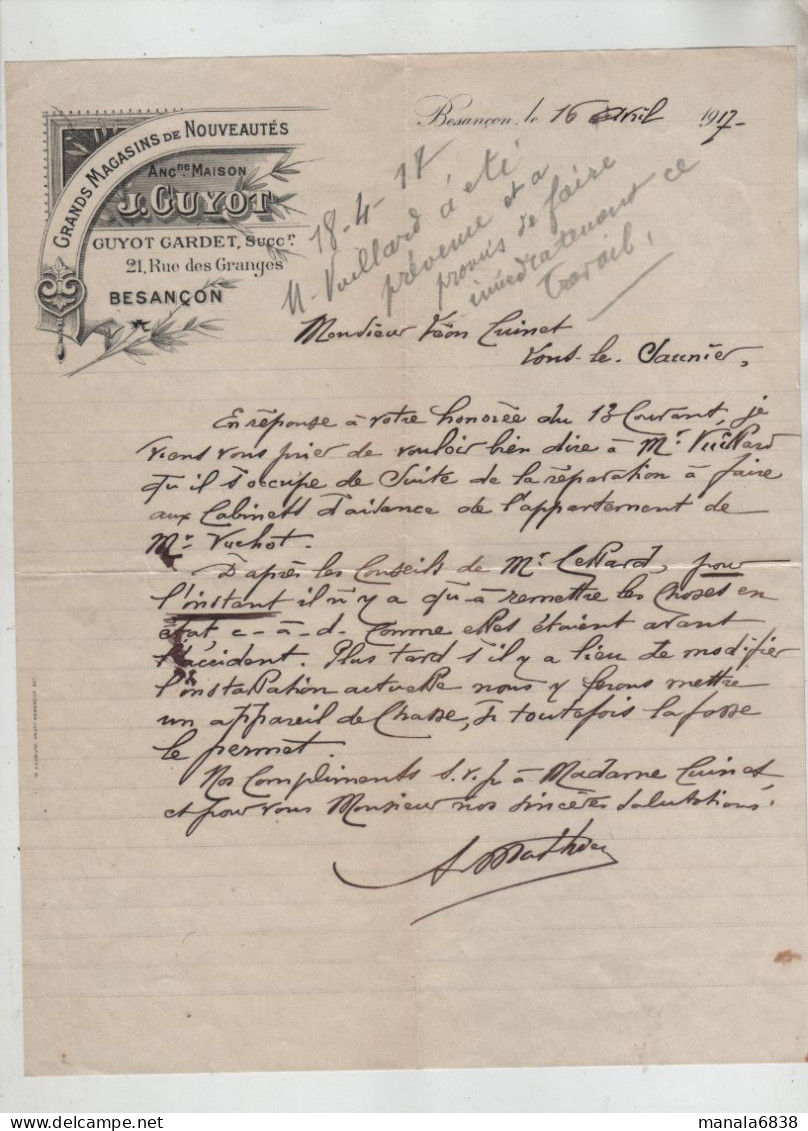 GRANDS MAGASINS DE NOUVEAUTÉS
ANCNE MAISON
J. GUYOT
GUYOT GARDET, SUCCR
21, Rue des Granges
BESANÇON
Besançon, le 16 Avril 1917
18-4-17
M. Vuillard a été
prévenu et a
promis de faire
immédiatement ce
travail,
Monsieur Léon Cuinet
Lons-le-Saunier,
En réponse à votre honorée du 13 Courant, je
viens vous prier de vouloir bien dire à Mr Vuillard
qu'il s'occupe de suite de la réparation à faire
aux Cabinets d'aisance de l'appartement de
Mr Vuchot.
D'après les Conseils de Mr pour
l'instant il n'y a qu'à remettre les Choses en
état c-à-d- comme elles étaient avant
l'accident. Plus tard s'il y a lieu de modifier
l'installation actuelle nous y ferons mettre
un appareil de Chasse, si toutefois la fosse
le permet.
Nos Compliments s.v.p. à Madame Cuinet
et pour vous Monsieur nos sincères salutations.
A Mathieu
www.delcampe.net
manala6838